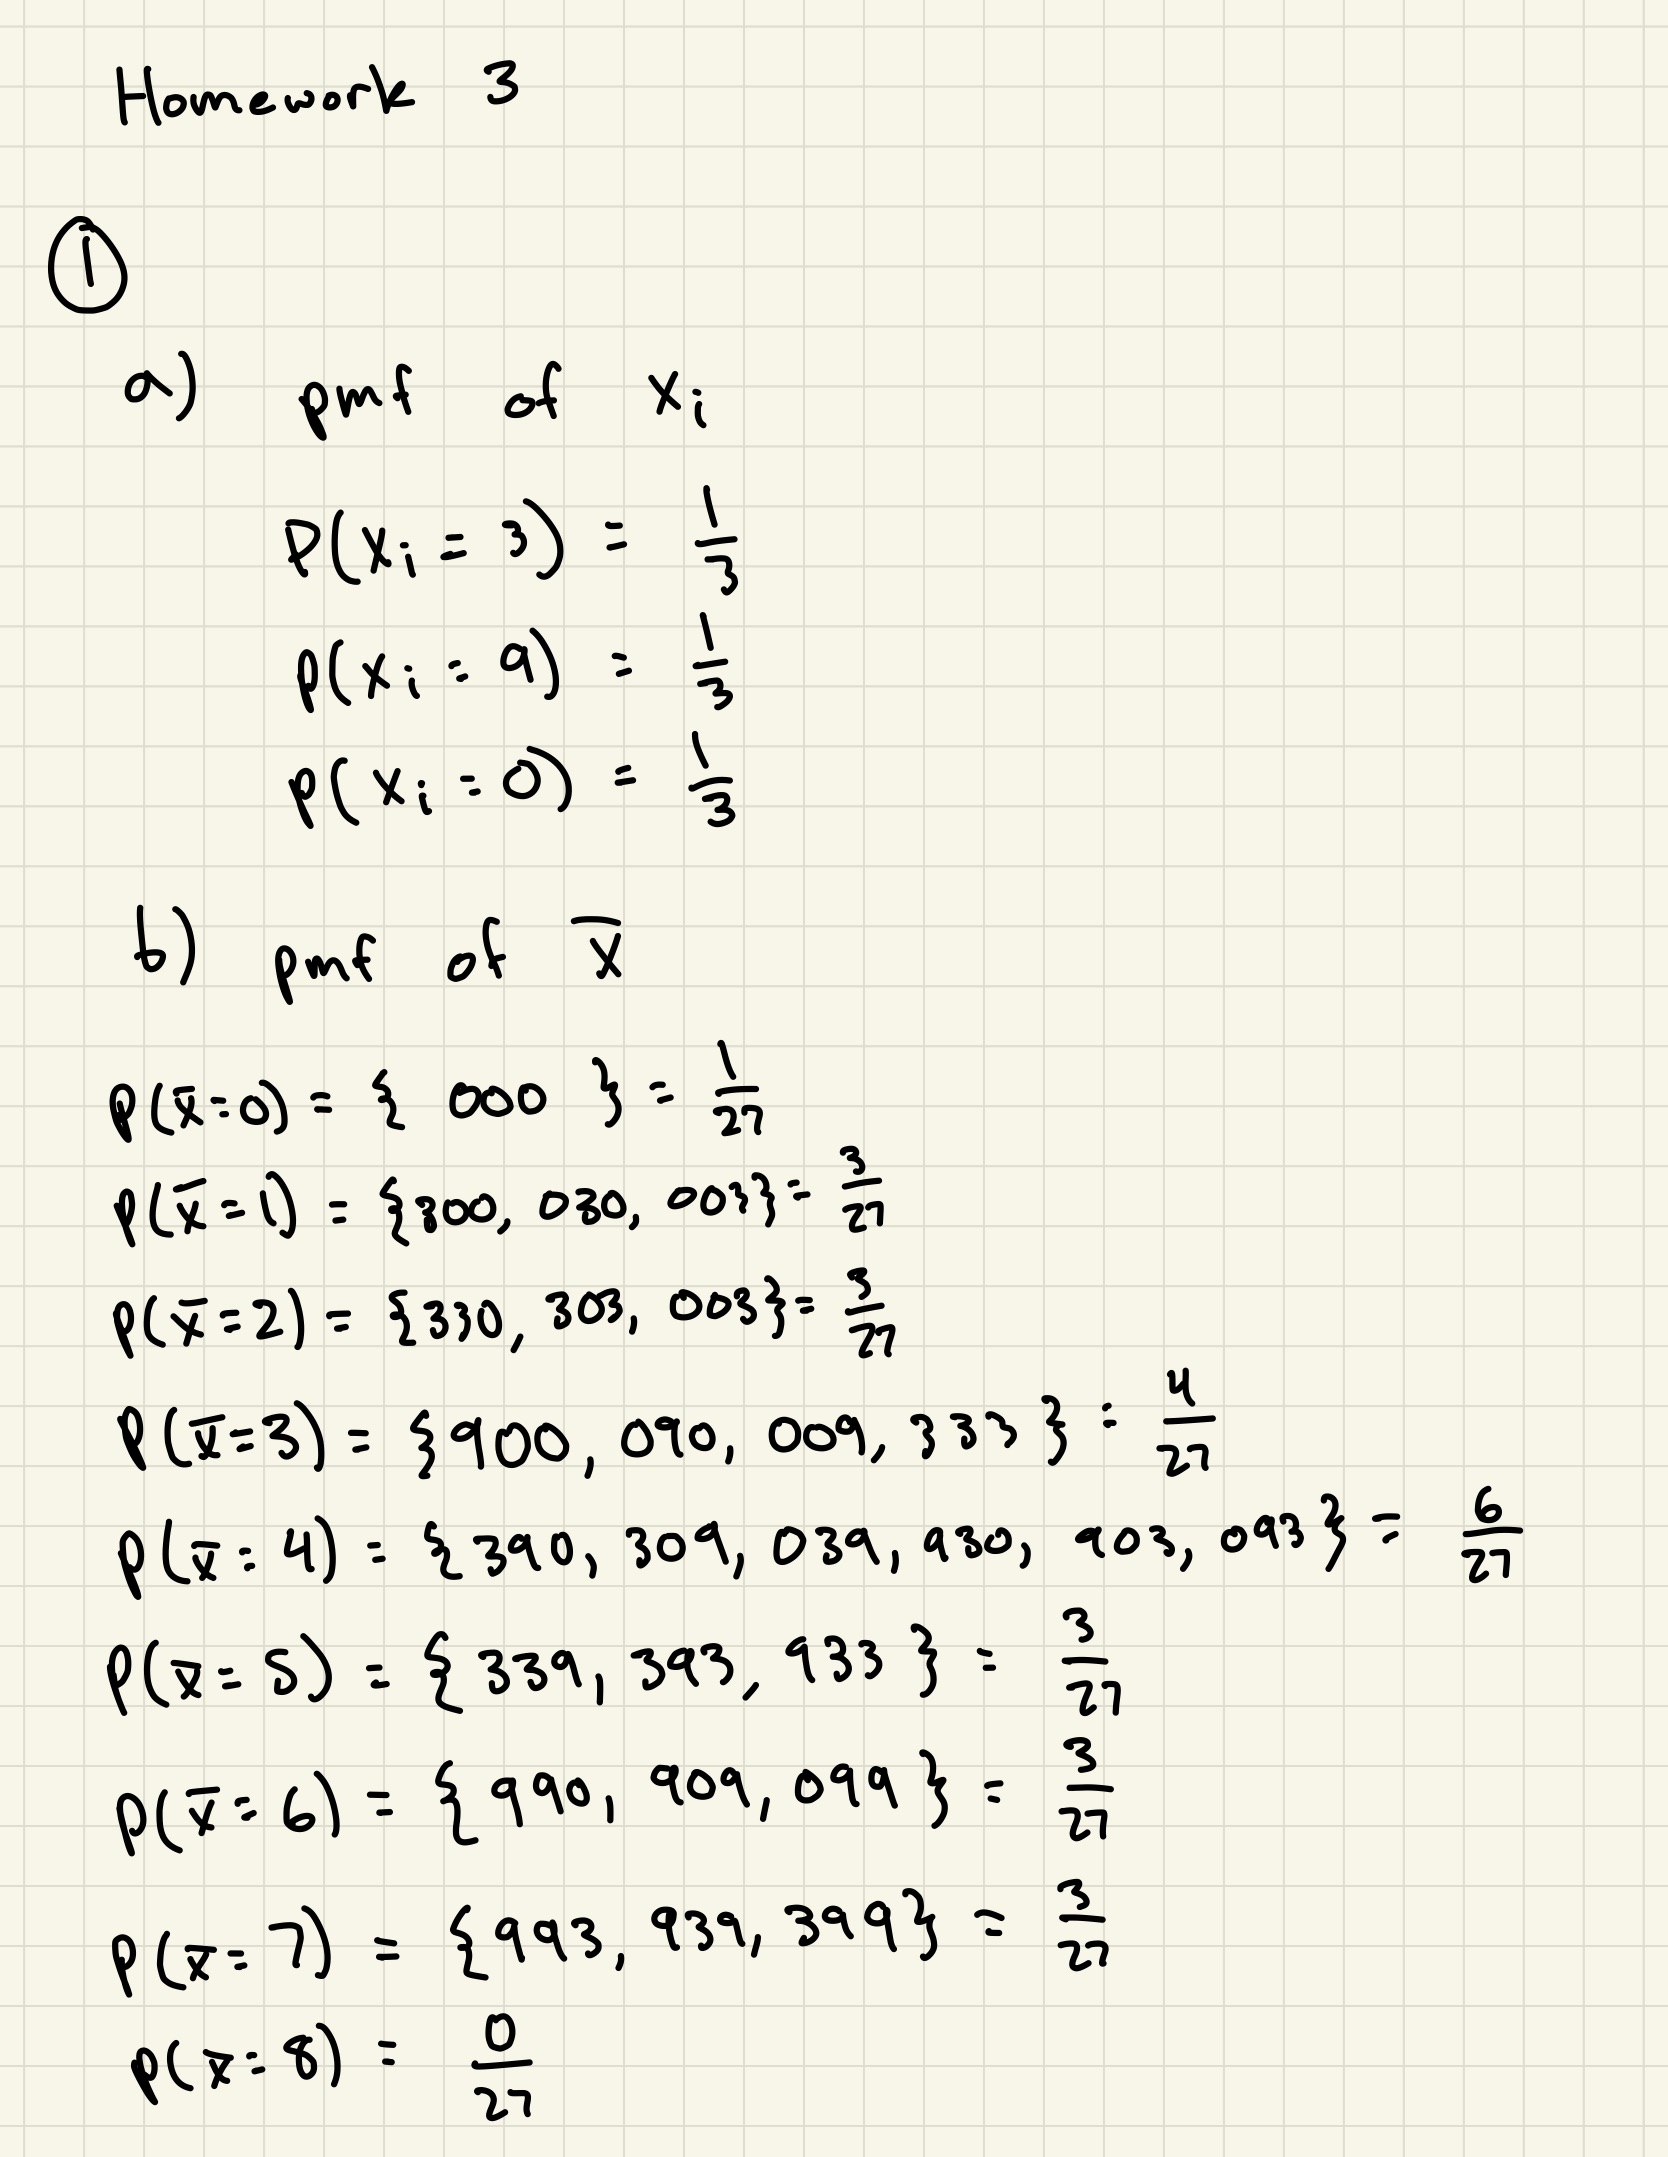 Homework 3
①
a) pmf of Xi
P(Xi = 3) = 1/3
p(Xi = 9) = 1/3
p(Xi = 0) = 1/3
b) pmf of X̅
p(x̅=0) = { 000 } = 1/27
p(x̅=1) = {300, 030, 003} = 3/27
p(x̅=2) = {330, 303, 003} = 3/27
p(x̅=3) = {900, 090, 009, 333} = 4/27
p(x̅=4) = {390, 309, 039, 930, 903, 093} = 6/27
p(x̅=5) = {339, 393, 933} = 3/27
p(x̅=6) = {990, 909, 099} = 3/27
p(x̅=7) = {993, 939, 399} = 3/27
p(x̅=8) = 0/27